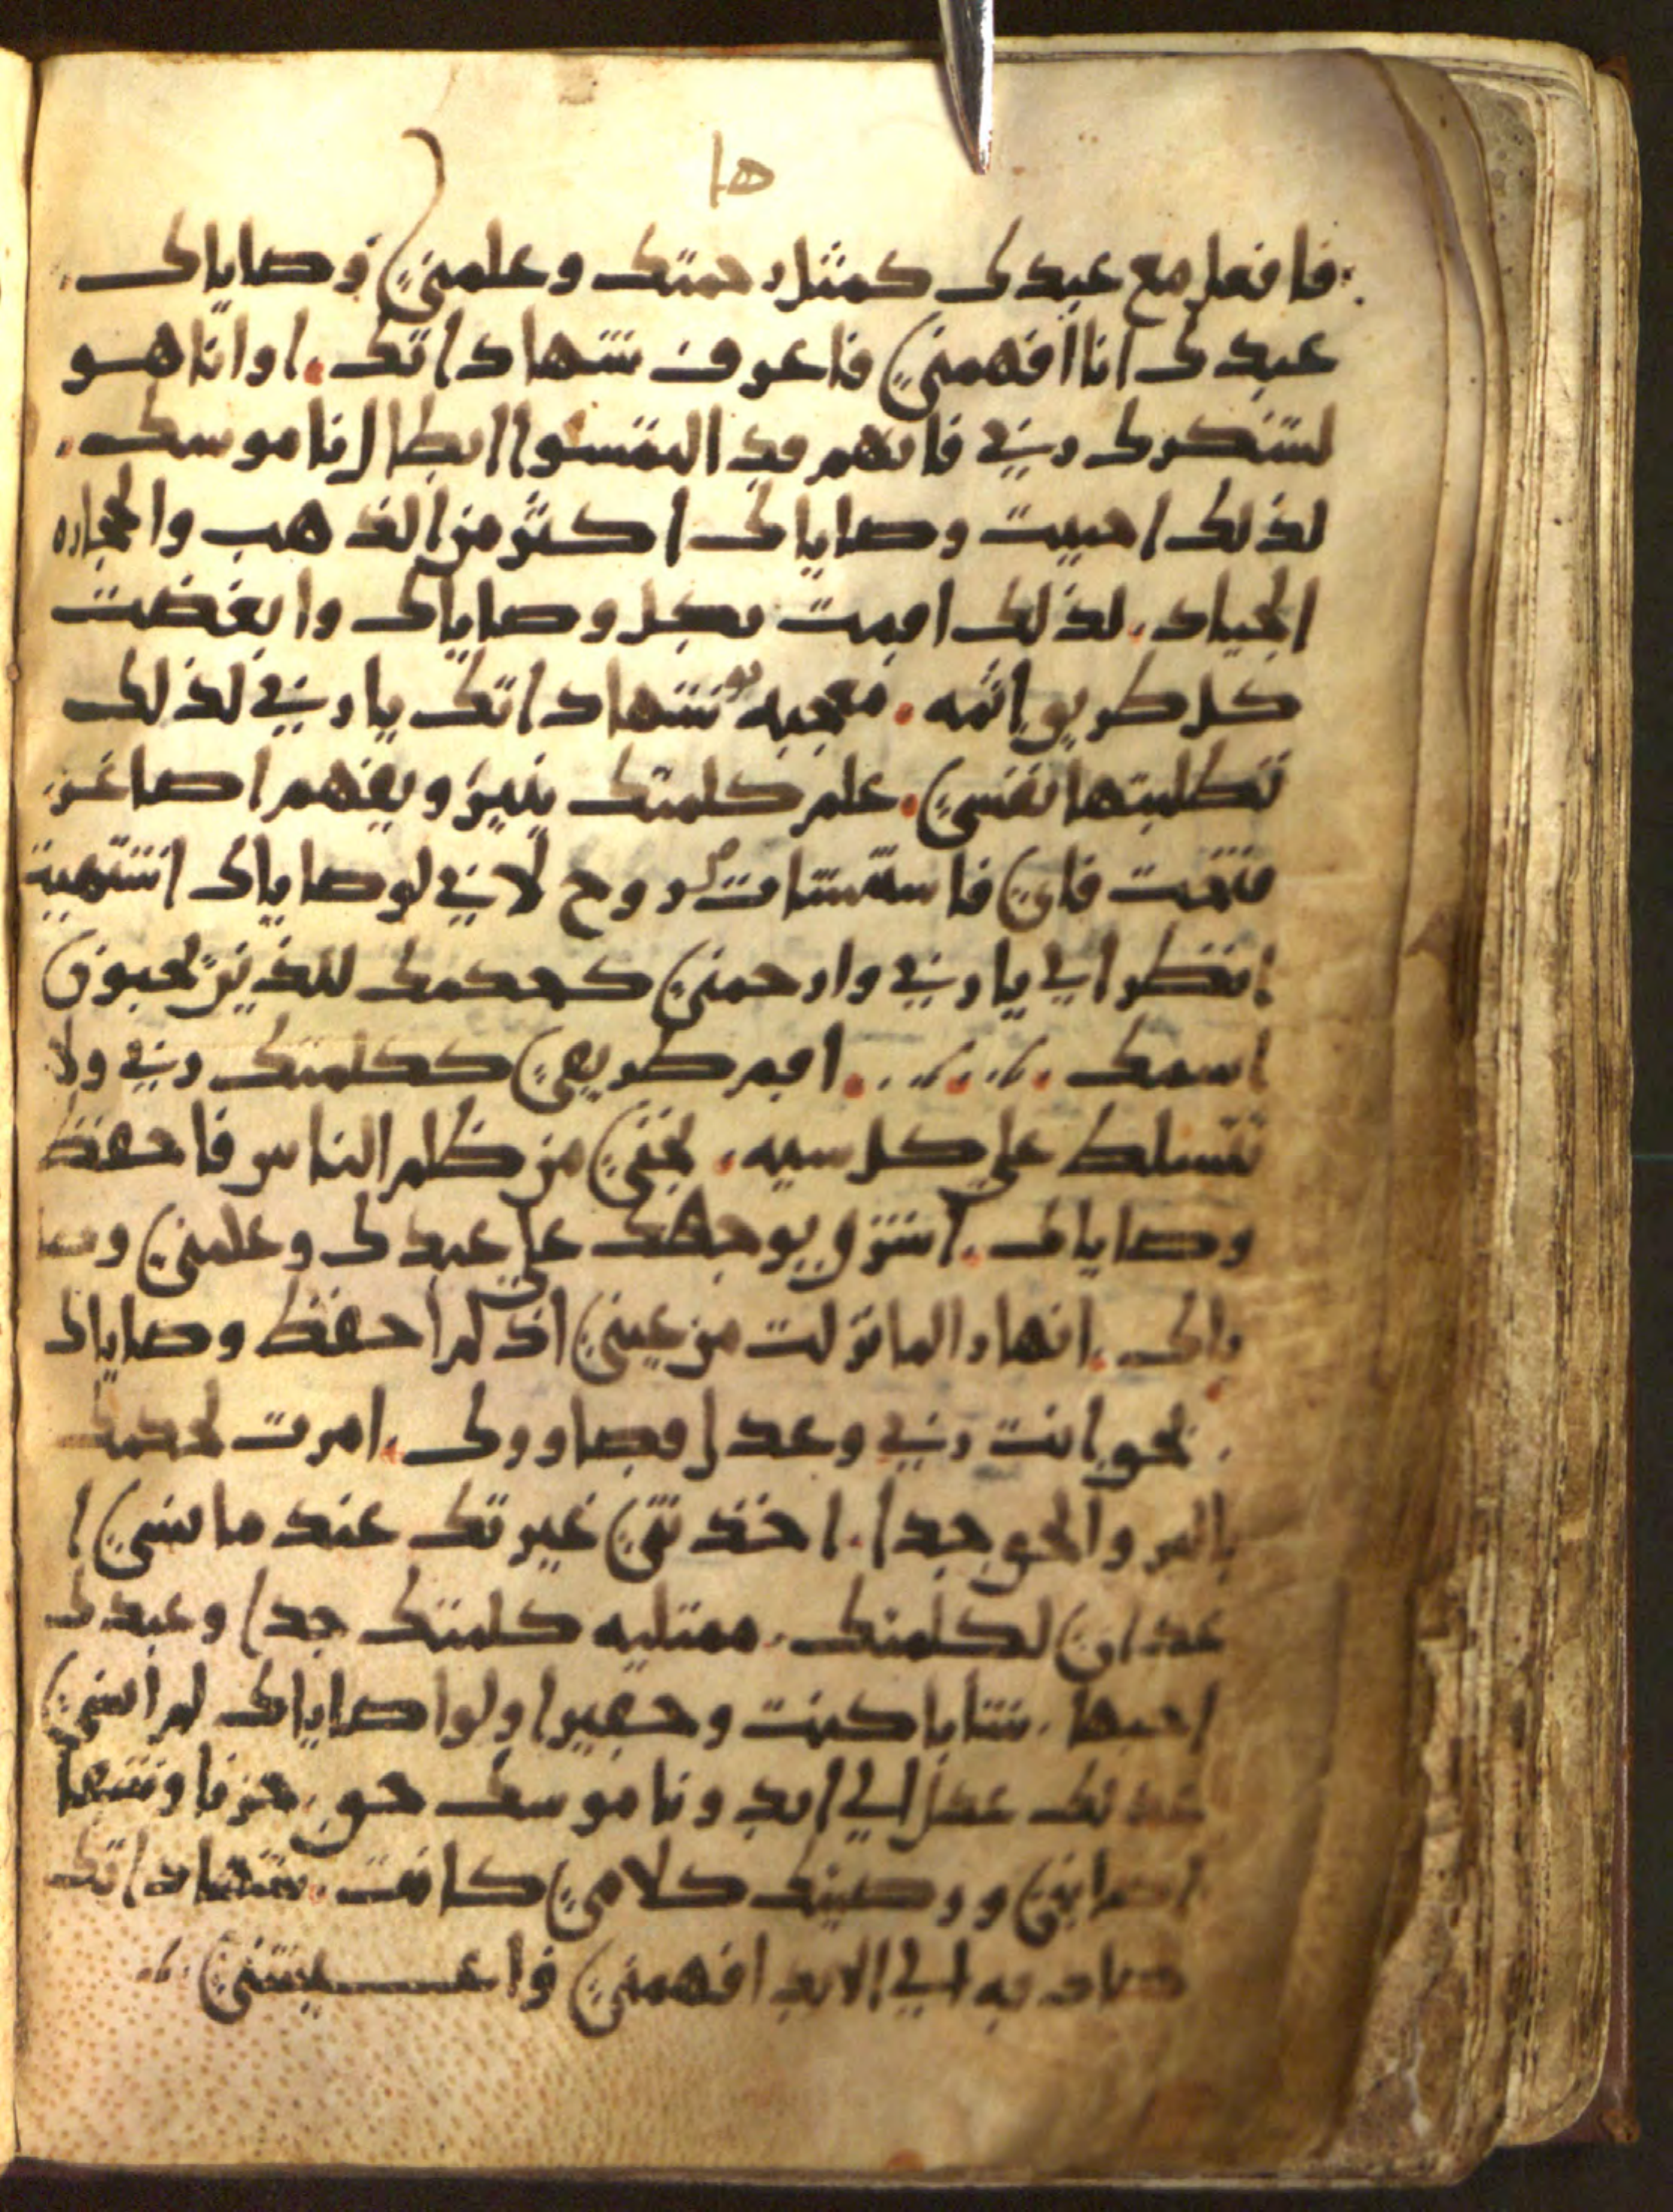 ها
فافعل مع عبدك كمثل رحمتك وعلمني وصاياك
عبدك انا افهمني فاعرف شهاداتك اوانا هو
لشكرك ربي فانهم قد التمسوا ابطال ناموسك
لذلك احببت وصاياك اكثر من الذهب والحجاره
الجياد لذلك اقمت بكل وصاياك وابغضت
كل طريق اثمه معجبه شهاداتك يا ربي لذلك
تطلبتها نفسي علم كلمتك ينير ويفهم اصاغر
فتحت فاي فاستشات روح لاني لوصاياك اشتهيت
انظر الي يا ربي وارحمني كحكمك للذين يحبون
اسمك اقم طريقي ككلمتك ربي ولا
تتسلط علي كل سيه نجني من ظلم الناس فاحفظ
وصاياك اشرق بوجهك علي عبدك وعلمني وصا
ياك انهار الما نزلت من عيني اذ لم احفظ وصاياك
بحق انت ربي وعدل قضاووك امرت بحكمك
بالبر والحق جدا اخذتني غيرتك عند ما نسي ا
عداي لكلمتك ممتليه كلمتك جدا وعبدك
احبها شابا كنت وحقيرا ولوصاياك لم انسي
عدلك عدل الي ابد وناموسك حق حزنا وشبها
اصابني ووصيتك كلامي كانت شهاداتك
صادقه الي الابد افهمني فاعيشني